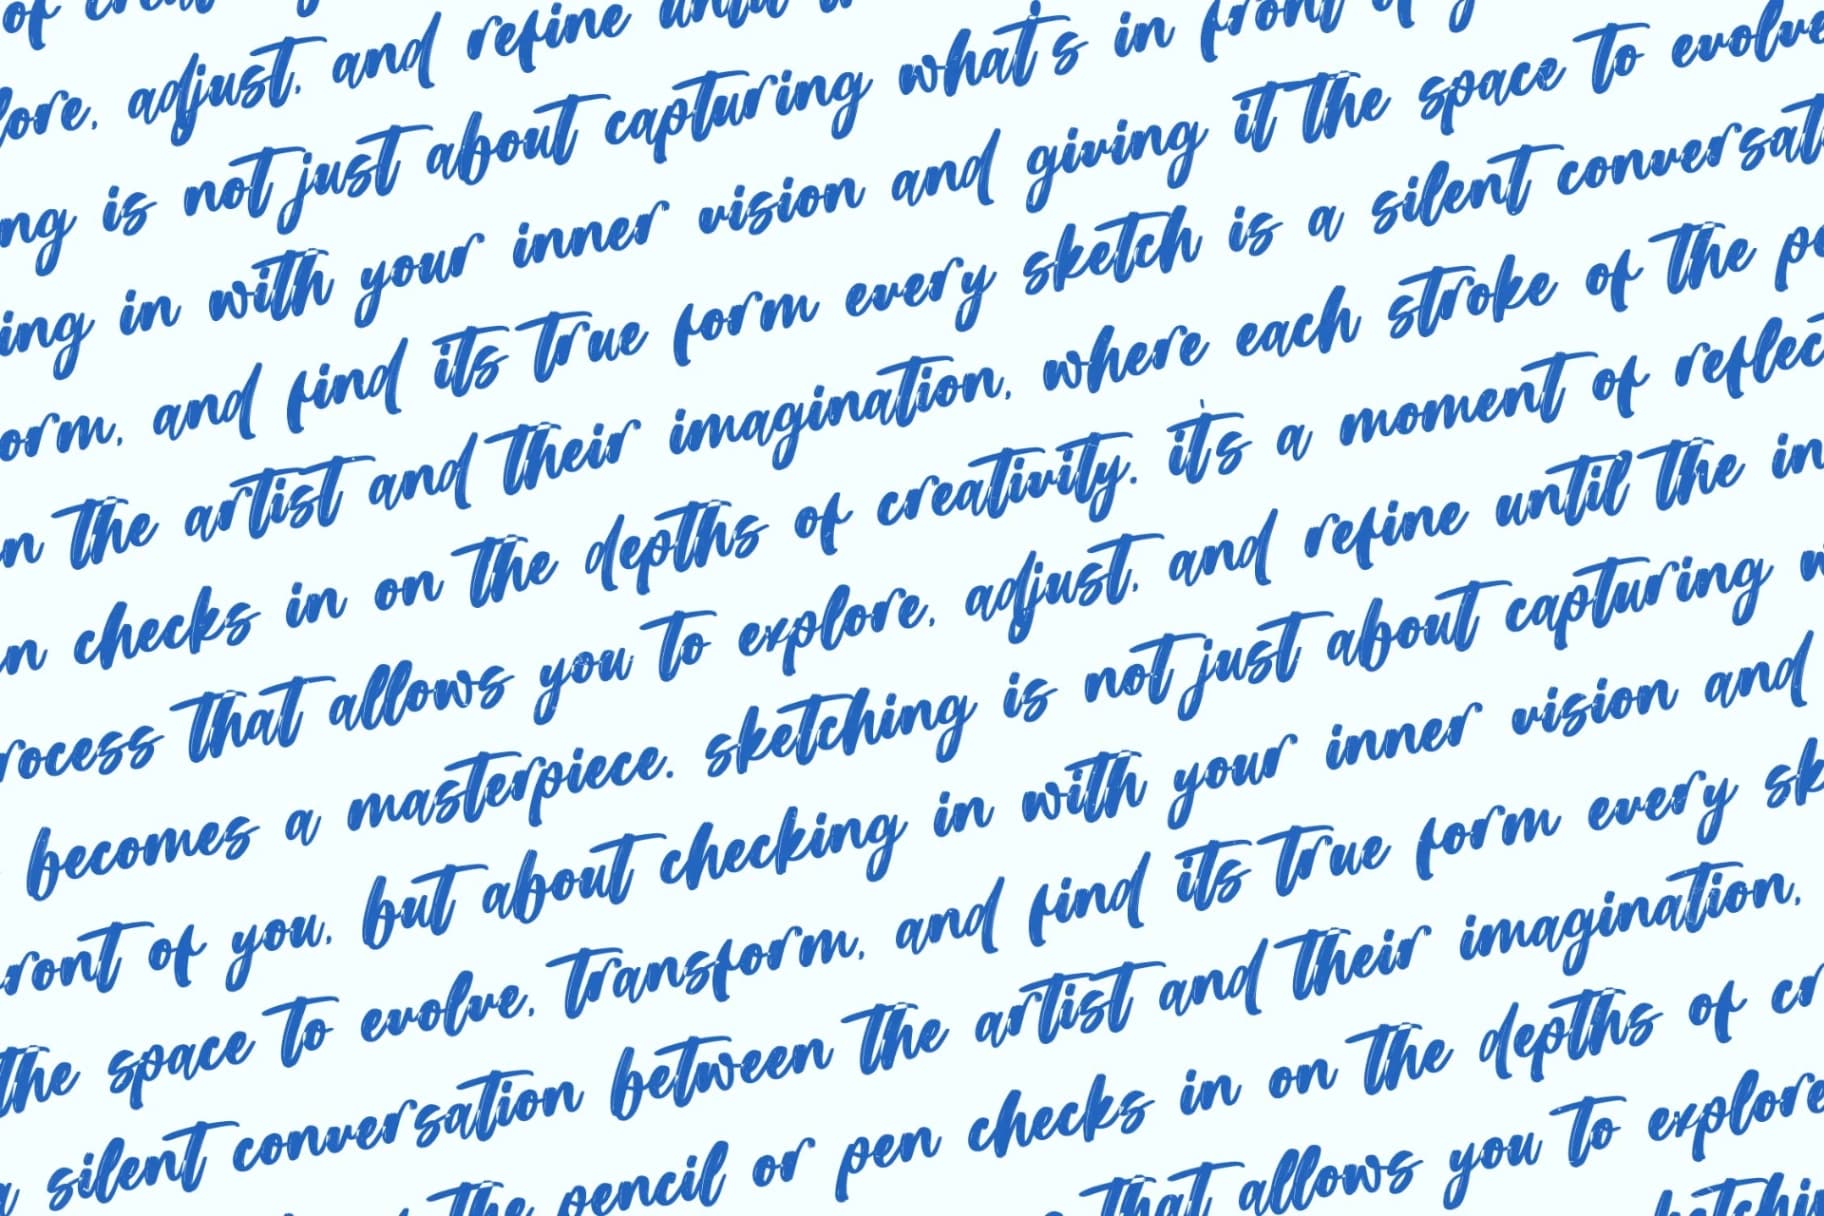 of creativ
lore, adjust, and refine until
ng is not just about capturing what's in front of y
ing in with your inner vision and giving it the space to evolve
orm, and find its true form every sketch is a silent conversati
n the artist and their imagination, where each stroke of the pe
n checks in on the depths of creativity. it's a moment of reflec
rocess that allows you to explore, adjust, and refine until the in
becomes a masterpiece. sketching is not just about capturing w
ront of you, but about checking in with your inner vision and
the space to evolve, transform, and find its true form every sk
a silent conversation between the artist and their imagination,
the pencil or pen checks in on the depths of cr
that allows you to explore